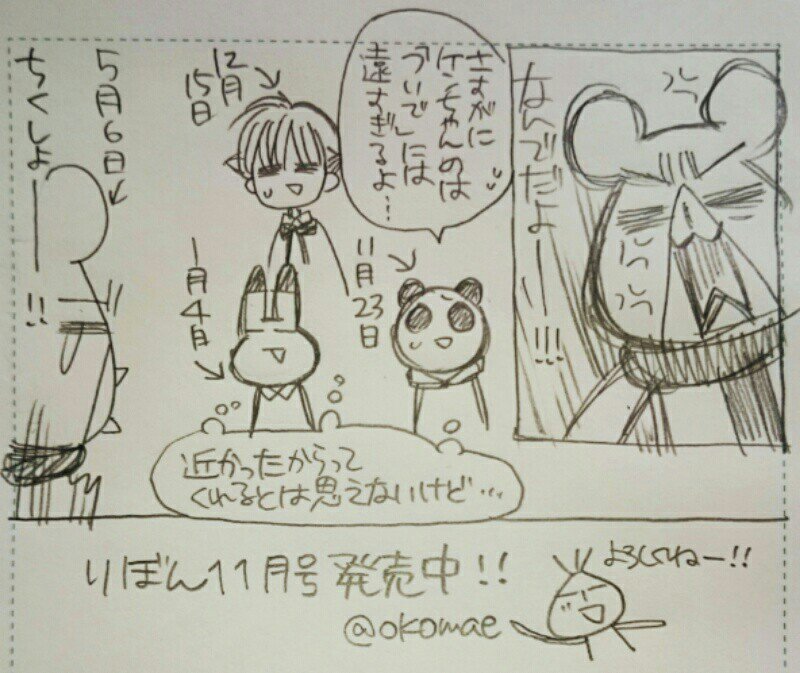 なんでだよーーー!!!
さすがに
ケンちゃんのは
「ついで」には
遠すぎるよ…
11月
23日
12月
15日
1月4日
5月6日
ちくしょーー!!
近かったからって
くれるとは思えないけど…
りぼん11月号発売中!!
@okomae
よろしくねー!!